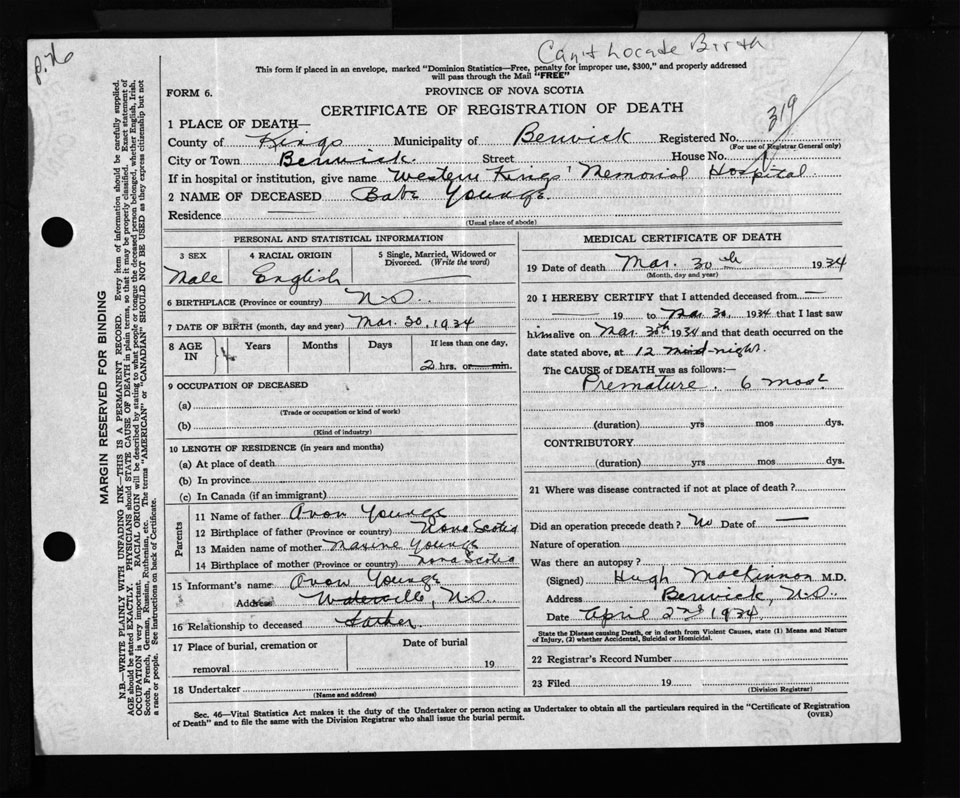 p. 76
Can't Locate Birth
This form if placed in an envelope, marked "Dominion Statistics—Free, penalty for improper use, $300," and properly addressed
will pass through the Mail "FREE"
FORM 6.
PROVINCE OF NOVA SCOTIA
CERTIFICATE OF REGISTRATION OF DEATH
319
1 PLACE OF DEATH—
County of Kings Municipality of Berwick Registered No.
(For use of Registrar General only)
City or Town Berwick. Street House No.
If in hospital or institution, give name Western Kings' Memorial Hospital
2 NAME OF DECEASED Babe Younge.
Residence —
(Usual place of abode)
PERSONAL AND STATISTICAL INFORMATION
3 SEX 4 RACIAL ORIGIN 5 Single, Married, Widowed or Divorced. (Write the word)
Male English —
6 BIRTHPLACE (Province or country) N.S.
7 DATE OF BIRTH (month, day and year) Mar. 30, 1934
8 AGE IN Years Months Days If less than one day,
2 hrs. or min.
9 OCCUPATION OF DECEASED
(a)
(Trade or occupation or kind of work)
(b)
(Kind of industry)
10 LENGTH OF RESIDENCE (in years and months)
(a) At place of death
(b) In province
(c) In Canada (if an immigrant)
Parents
11 Name of father Avon Younge
12 Birthplace of father (Province or country) Nova Scotia
13 Maiden name of mother Maxine Younge
14 Birthplace of mother (Province or country) Nova Scotia
15 Informant's name Avon Younge
Address Waterville, N.S.
16 Relationship to deceased Father.
17 Place of burial, cremation or Date of burial
removal 19
18 Undertaker
(Name and address)
MEDICAL CERTIFICATE OF DEATH
19 Date of death Mar. 30th 1934
(Month, day and year)
20 I HEREBY CERTIFY that I attended deceased from —
— 19 to Mar 30, 1934 that I last saw
him alive on Mar. 30th 1934 and that death occurred on the
date stated above, at 12 mid-night.
The CAUSE of DEATH was as follows:
Premature. 6 mos
(duration) yrs mos dys.
CONTRIBUTORY
(duration) yrs mos dys.
21 Where was disease contracted if not at place of death?
Did an operation precede death? No Date of —
Nature of operation
Was there an autopsy?
(Signed) Hugh MacKinnon M.D.
Address Berwick, N.S.
Date April 2nd 1934.
State the Disease causing Death, or in death from Violent Causes, state (1) Means and Nature
of Injury, (2) whether Accidental, Suicidal or Homicidal.
22 Registrar's Record Number
23 Filed 19
(Division Registrar)
Sec. 46—Vital Statistics Act makes it the duty of the Undertaker or person acting as Undertaker to obtain all the particulars required in the "Certificate of Registration
of Death" and to file the same with the Division Registrar who shall issue the burial permit. (OVER)
MARGIN RESERVED FOR BINDING
N.B.—WRITE PLAINLY WITH UNFADING INK—THIS IS A PERMANENT RECORD. Every item of information should be carefully supplied.
AGE should be stated EXACTLY. PHYSICIANS should STATE CAUSE OF DEATH in plain terms, so that it may be properly classified. Exact statement of
OCCUPATION is very important. RACIAL ORIGIN will be described by stating to what people or tongue the deceased person belonged, whether English, Irish,
Scotch, French, German, Russian, Ruthenian, etc. The terms "AMERICAN" or "CANADIAN" SHOULD NOT BE USED as they express citizenship but not
a race or people. See instructions on back of Certificate.